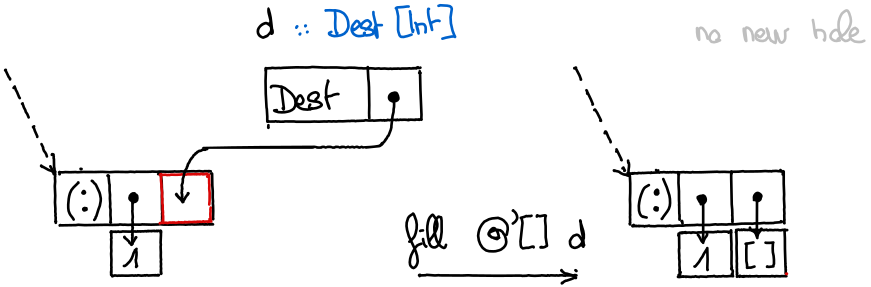 d :: Dest [Int]
no new hole
Dest
(:)
1
fill @'[] d
(:)
1
[]